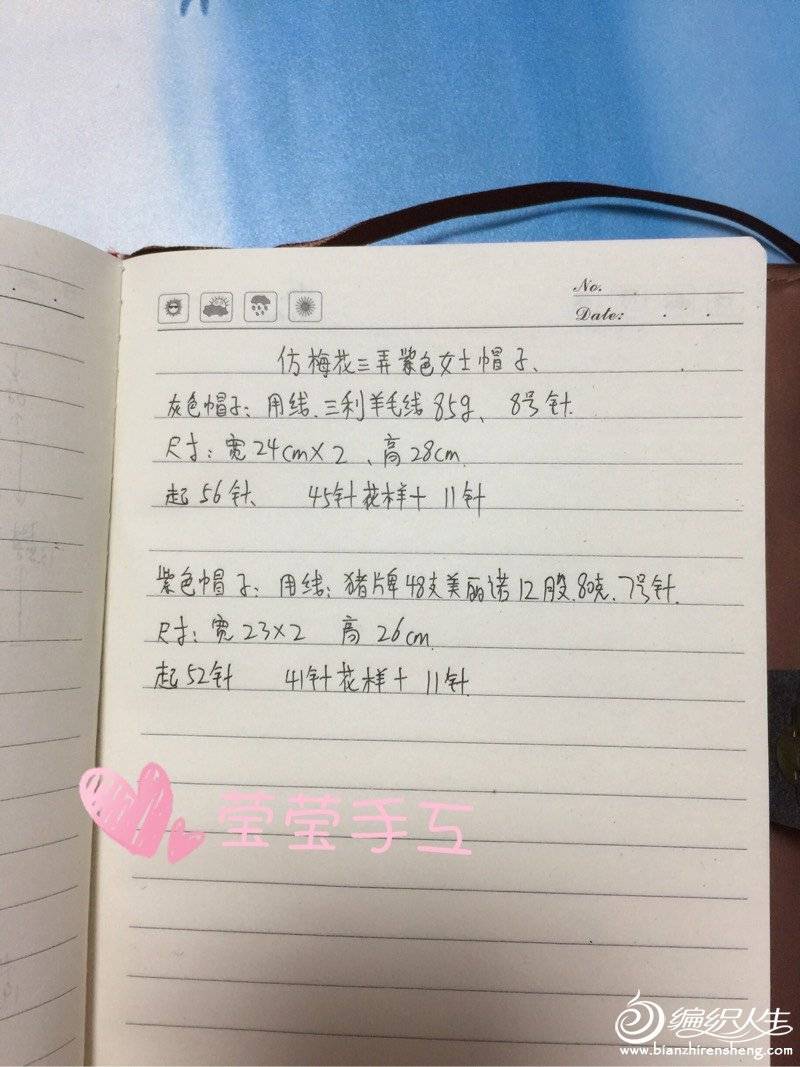 No.
Date:
仿梅花三弄紫色女士帽子、
灰色帽子：用线、三利羊毛线85g、8号针.
尺寸：宽24cm×2、高28cm.
起56针、 45针花样+11针
紫色帽子：用线：猪牌48支美丽诺12股.80克、7号针.
尺寸：宽23×2 高26cm.
起52针 41针花样+11针.
莹莹手工
编织人生
www.bianzhirensheng.com